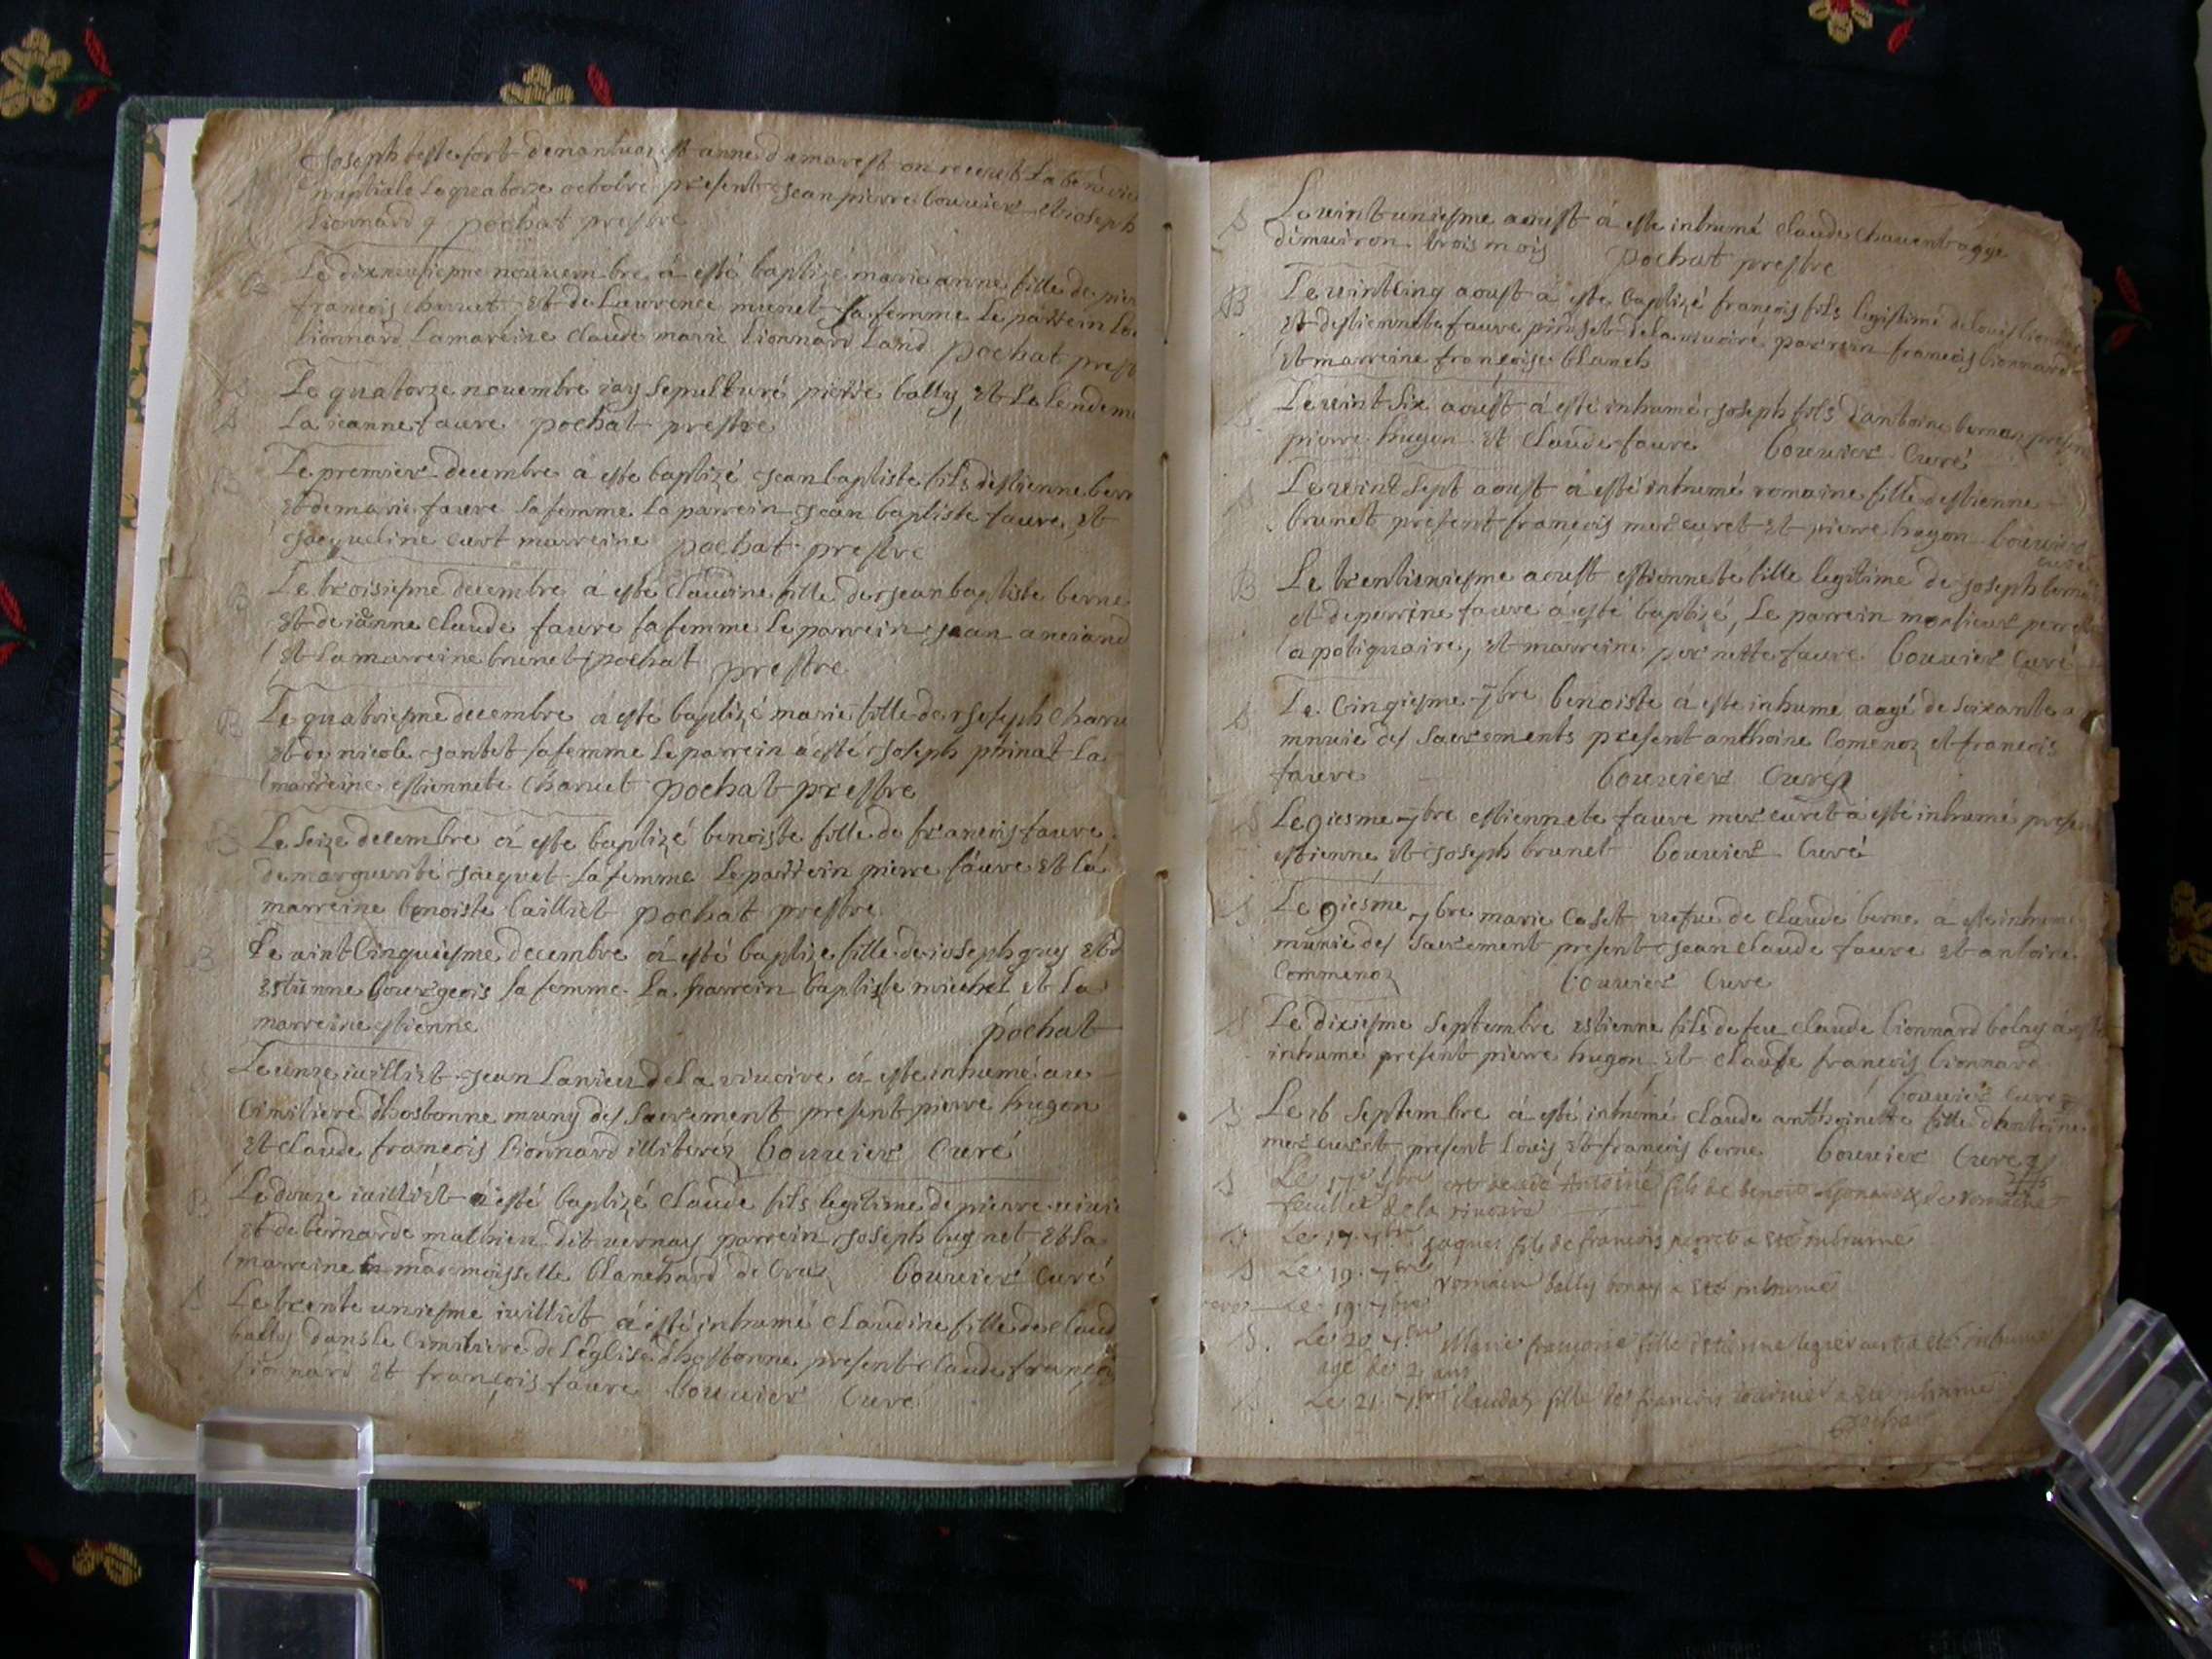 Joseph testefort demantuaz et anne dumarest on receut la benedic
nuptiale le quatorze octobre presents jean pierre bouvier et ioseph
lionnard pochat prestre
Le dixneufiesme nouvembre á esté baptizé marie anne fille de pier
francois charvet et de laurence munet sa femme le parrein
lionnard lamareine claude marie lionnard land pochat prest
S Le quatorze nouembre iay sepulturé pierre bally et le lendem
S la ieanne faure pochat prestre
B Le premier decembre á este baptizé jean baptiste fils destienne bern
et de marie faure sa femme le parrein jean baptiste faure, et
jacqueline curt marreine pochat prestre
B Le troisiesme decembre á esté claudine fille de jean baptiste berne
et de ieanne claude faure sa femme le parrein jean
et la marreine brunet pochat prestre
B Le quatriesme decembre á esté baptizé marie fille de joseph charv
et de nicole jantet sa femme le parrein á esté joseph phinat la
marreine estiennete charvet pochat prestre
B Le seize decembre á este baptizé benoiste fille de francois faure
de marguerite jaquet sa femme le parrein pierre faure et lá
marreine benoiste pochat prestre
B Le vint cinquiesme decembre á esté baptize fille de ioseph guy et d
estienne bourgeois sa femme le parrein baptiste michel et la
marreine estienne pochat
Le unze iuilliet jean lanier de la rivoire á este inhumé au
cimitiere dhostonne muny des sacrement present pierre hugon
et claude francois lionnard illiterez bouvier curé
B Le douze iuilliet á esté baptizé claude fils legitime de pierre
et de bernarde mathieu dit vernay parrein joseph bugnet et la
marreine mademoisselle blanchard de bouvier curé
S Le trente uniesme iuilliet á esté inhumé claudine fille de claud
bally dans le cimitiere de leglise dhostonne present claude francois
lionnard et francois faure bouvier curé
S Le vint uniesme aoust á este inhumé claude
denviron trois mois pochat prestre
B Le vintcinq aoust á este baptizé francois fils legistime de louis lionnard
et destiennete faure de la rivoire, parrein francois lionnard
et marreine francoise blanch
Le vint six aoust á esté inhumé joseph fils dantoine present
pierre hugon et claude faure bouvier curé
S Le vint sept aoust á esté inhumé romaine fille destienne
brunet present francois mercuret et pierre hugon bouvier
curé
B Le trentiesniesme aoust estiennete fille legitime de joseph berne
et de perrine faure á esté baptizé, le parrein monsieur
apotiquaire, et marreine pernette faure bouvier curé
S Le cinqiesme 7bre benoiste á este inhumé aagé de soixante
munie des sacrements present anthoine comenoz et francois
faure bouvier curé
S Le 9iesme 7bre estiennete faure mercuret á esté inhumé present
estienne et joseph brunet bouvier curé
S Le 9iesme 7bre marie caset vefue de claude berne á este inhumé
munie des sacrement present jean claude faure et antoine
commenoz bouvier curé
S Le dixiesme septembre estienne fils de feu claude lionnard bolay á
inhumé present pierre hugon et claude francois lionnard
bouvier curé
S Le 16 septembre á esté inhumé claude anthoinette fille dantoine
mercuret present louis et francois berne bouvier curé
S Le 17e 7bre est decedé Antoine fils de benoit lyonnard & de romaine
feuillet de la rivoire
S Le 17 7bre jaques fils de francois perret a eté inhumé
S Le 19 7bre romain bally a eté inhumé
Le 19 7bre
S. Le 20 7bre Marie francoise fille a eté inhumé
agé de 2 ans
S Le 21 7bre fille de francois a eté inhumé
pochat